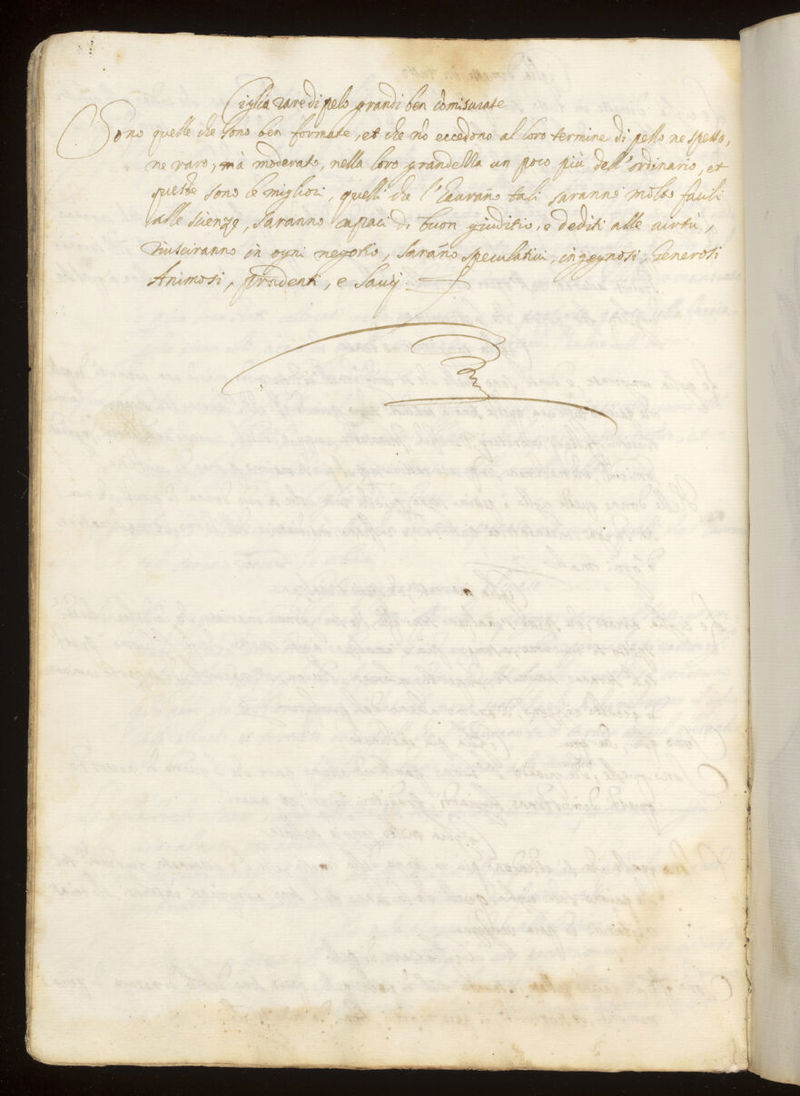 Ciglia rare di pelo grandi ben comisurate
Sono quelle che sono ben formate, et che nõ eccedono al loro termine di pello ne spesso,
ne raro, mà moderato, nella loro grandezza un poco più dell'ordinario, et
queste sono le migliori, quelli che l'hauraño tali saranno molto facili
alle scienze, saranno capaci di buon giuditio, e dediti alle uirtù,
riusciranno in ogni negotio, saraño speculatiui, ingegnosi, Generosi
Animosi, prudenti, e sauij.